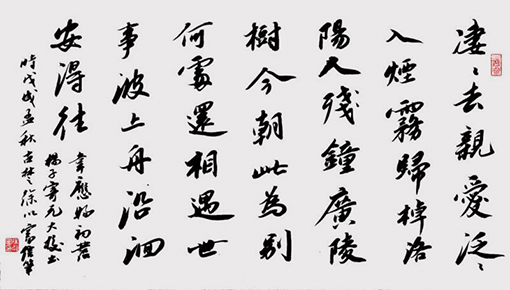 凄〻去親愛泛〻
入煙霧歸棹洛
陽人殘鐘廣陵
樹今朝此為別
何處還相遇世
事波上舟沿洄
安得往
韋應物初發
揚子寄元大校书
時戊戌孟秋古楚徐